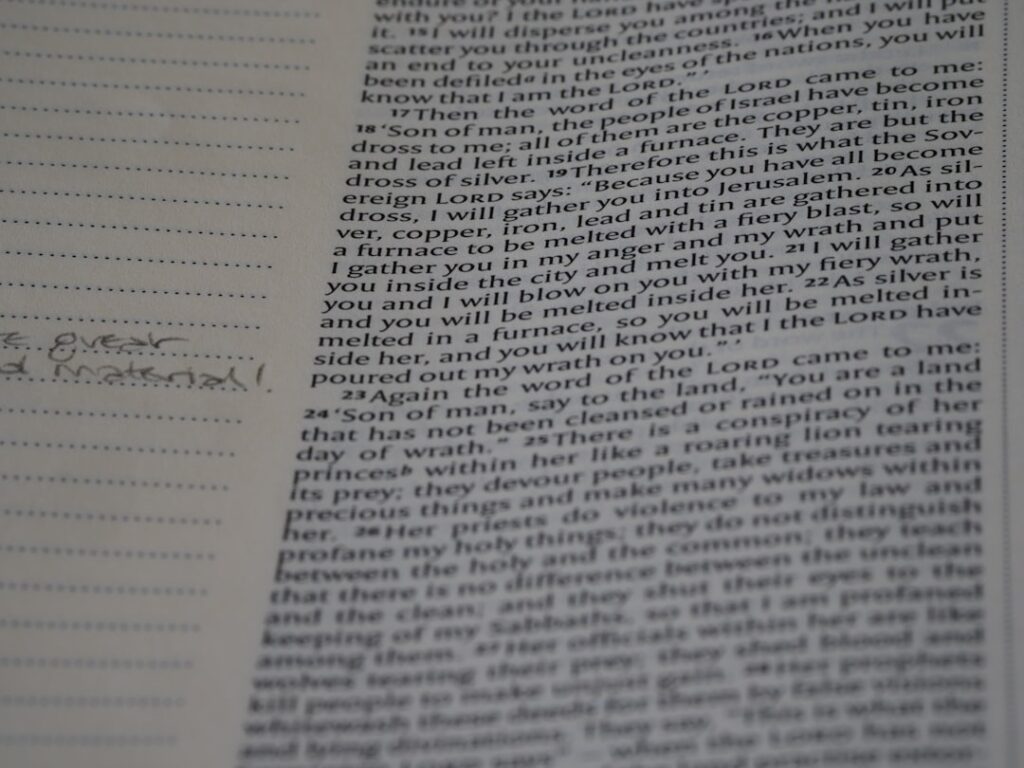 with you? I the LORD have
it. 15 I will disperse you among the
scatter you through the countries; and I will put
an end to your uncleanness. 16 When you have
been defiled a in the eyes of the nations, you will
know that I am the LORD.” ’
17 Then the word of the LORD came to me:
18 ‘Son of man, the people of Israel have become
dross to me; all of them are the copper, tin, iron
and lead left inside a furnace. They are but the
dross of silver. 19 Therefore this is what the Sov-
ereign LORD says: “Because you have all become
dross, I will gather you into Jerusalem. 20 As sil-
ver, copper, iron, lead and tin are gathered into
a furnace to be melted with a fiery blast, so will
I gather you in my anger and my wrath and put
you inside the city and melt you. 21 I will gather
you and I will blow on you with my fiery wrath,
and you will be melted inside her. 22 As silver is
melted in a furnace, so you will be melted in-
side her, and you will know that I the LORD have
poured out my wrath on you.” ’
23 Again the word of the LORD came to me:
24 ‘Son of man, say to the land, “You are a land
that has not been cleansed or rained on in the
day of wrath.” 25 There is a conspiracy of her
princes b within her like a roaring lion tearing
its prey; they devour people, take treasures and
precious things and make many widows within
her. 26 Her priests do violence to my law and
profane my holy things; they do not distinguish
between the holy and the common; they teach
that there is no difference between the unclean
and the clean; and they shut their eyes to the
keeping of my Sabbaths, so that I am profaned
among them. 27 Her officials within her are like
wolves tearing their prey; they shed blood and
kill people to make unjust gain. 28 Her prophets
whitewash these deeds for them by false visions
and lying divinations. They say, “This is what the
great
material!